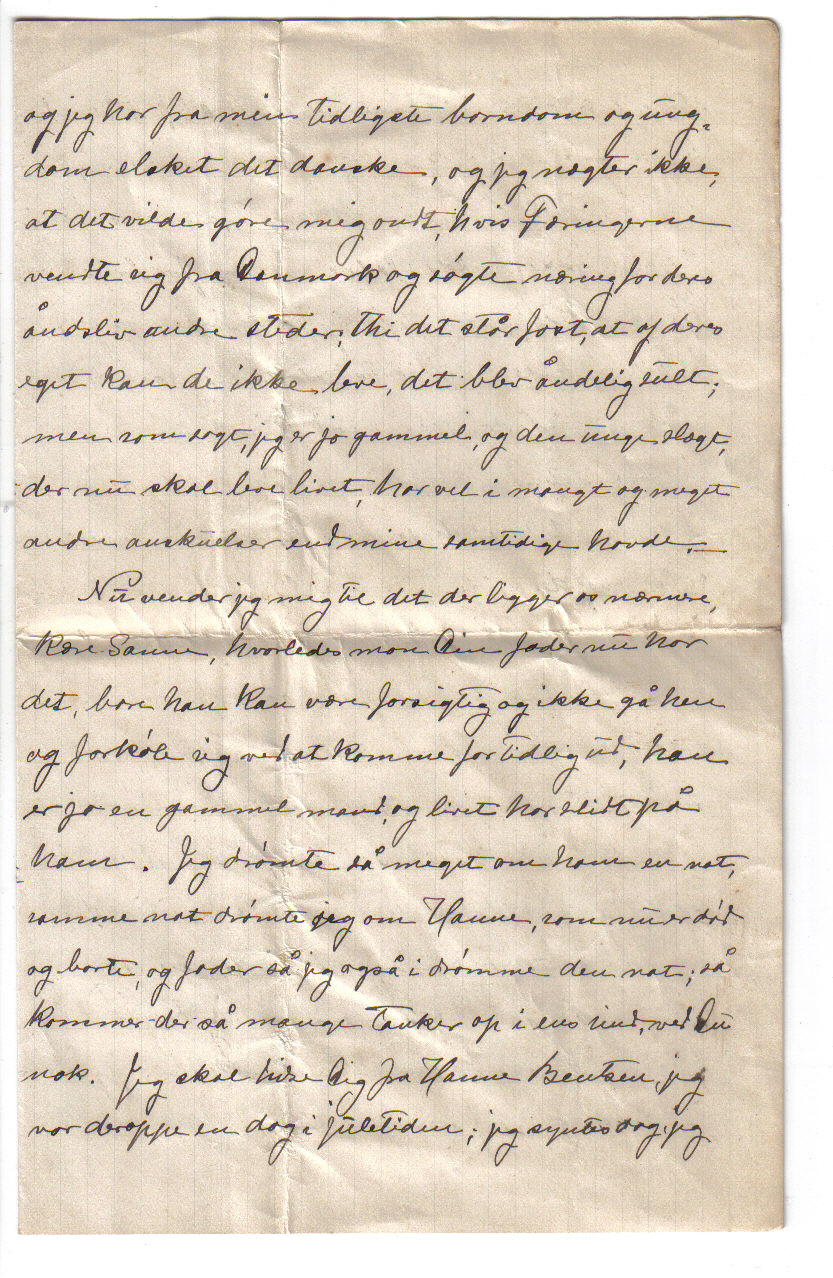 og jeg har fra min tidligste barndom og ung-
dom elsket det danske, og jeg nægter ikke,
at det vilde gøre mig ondt, hvis Færingerne
vendte sig fra Danmark og søgte næring for deres
åndsliv andre steder; thi det står fast, at af deres
eget kan de ikke leve, det blev åndelig sult;
men som sagt, jeg er jo gammel, og den unge slægt,
der nu skal leve livet, har vel i mangt og meget
andre anskuelser end mine samtidige havde. —
Nu vender jeg mig til det der ligger os nærmere,
kære Sanne, hvorledes mon Din fader nu har
det, bare han kan være forsigtig og ikke gå hen
og forkøle sig ved at komme for tidlig ud, han
er jo en gammel mand, og livet har slidt på
ham. Jeg drømte så meget om ham en nat,
samme nat drømte jeg om Hanne, som nu er død
og borte, og fader så jeg også i drømme den nat; så
kommer der så mange tanker op i ens sind, ved Du
nok. Jeg skal hilse Dig fra Hanne Bentsen, jeg
var deroppe en dag i juletiden; jeg syntes dog, jeg